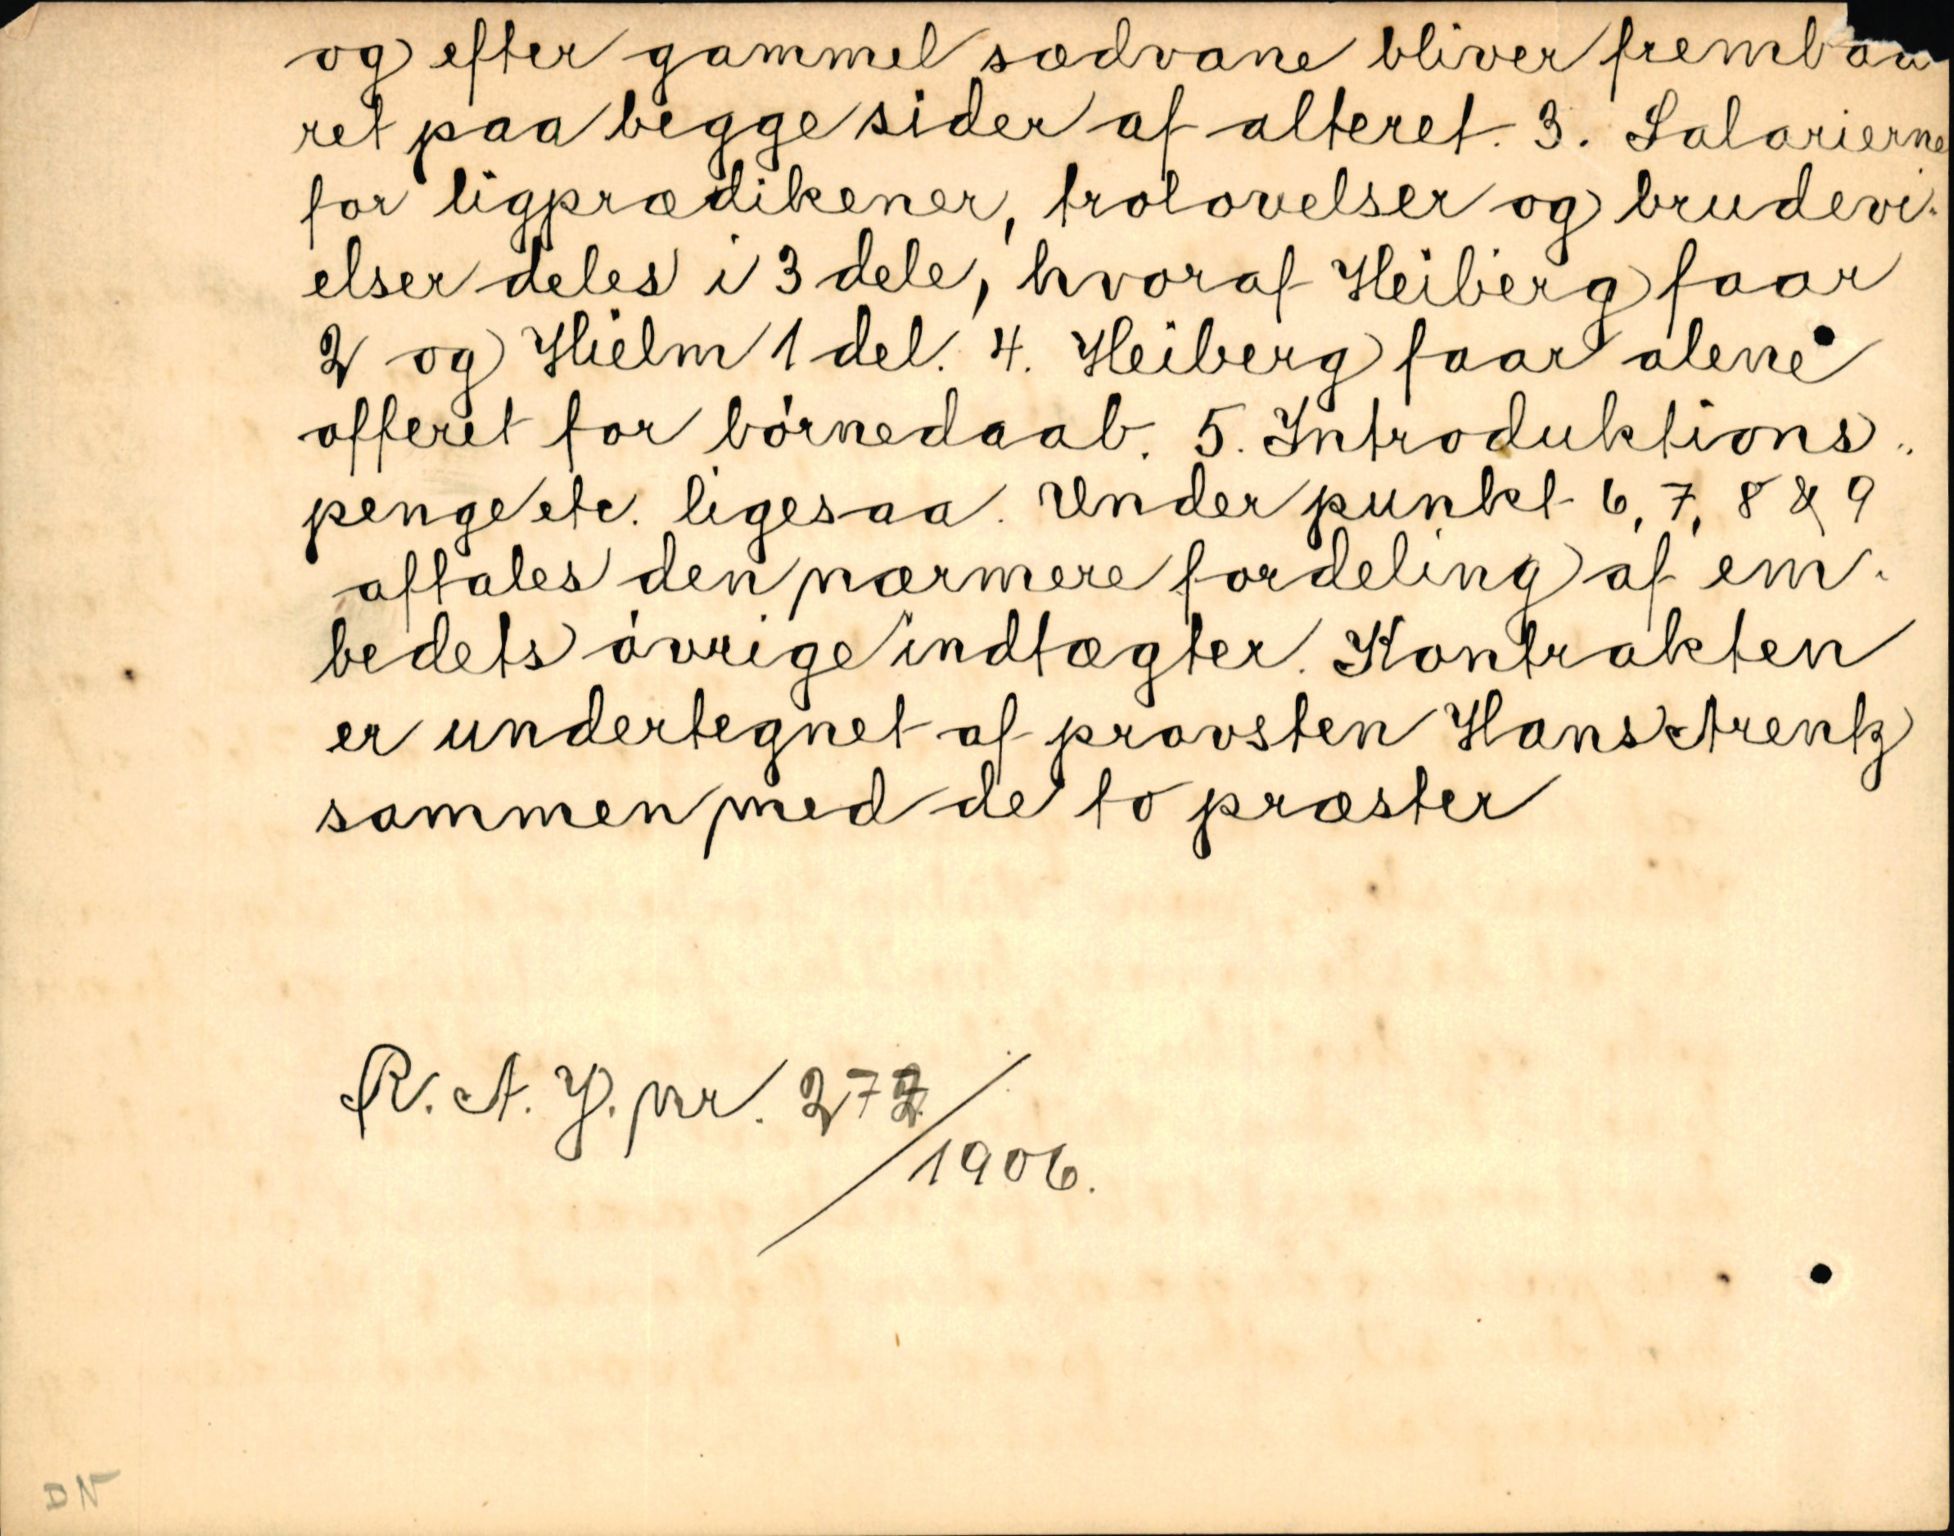 og efter gammel sædvane bliver fremboa
ret paa begge sider af alteret. 3. Salarierne
for ligprædikener, trolovelser og brudevi-
elser deles i 3 dele, hvoraf Heiberg faar
2 og Hielm 1 del. 4. Heiberg faar alene
offeret for børnedaab. 5. Introduktions-
penge etc. ligesaa. Under punkt 6, 7, 8 & 9
aftales den nærmere fordeling af em-
bedets øvrige indtægter. Kontrakten
er undertegnet af provsten Hans Arentz
sammen med de to præster
R. A. Y. nr. 272/1906.
DN